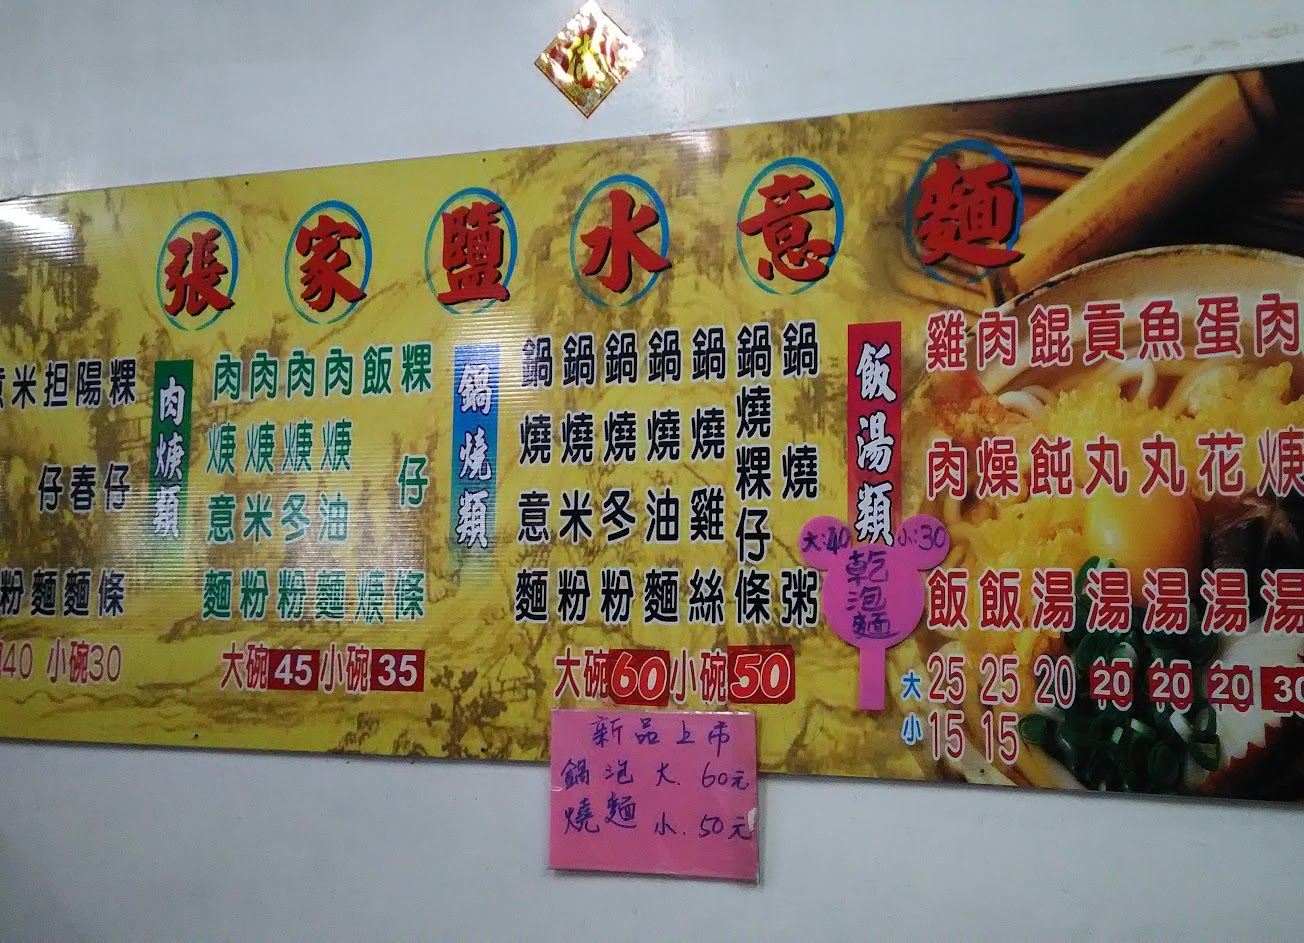 張家鹽水意麵
米粉
担仔麵
陽春麵
粿仔條
40 小碗30
肉焿類
肉焿意麵
肉焿米粉
肉焿冬粉
肉焿油麵
飯焿
粿仔條
大碗45小碗35
鍋燒類
鍋燒意麵
鍋燒米粉
鍋燒冬粉
鍋燒油麵
鍋燒雞絲
鍋燒粿仔條
鍋燒粥
大碗60小碗50
飯湯類
雞肉飯
肉燥飯
餛飩湯
貢丸湯
魚丸湯
蛋花湯
肉焿湯
大 25 25 20 20 20 20 30
小 15 15
大:40 小:30
乾泡麵
新品上市
鍋燒泡麵
大. 60元
小. 50元